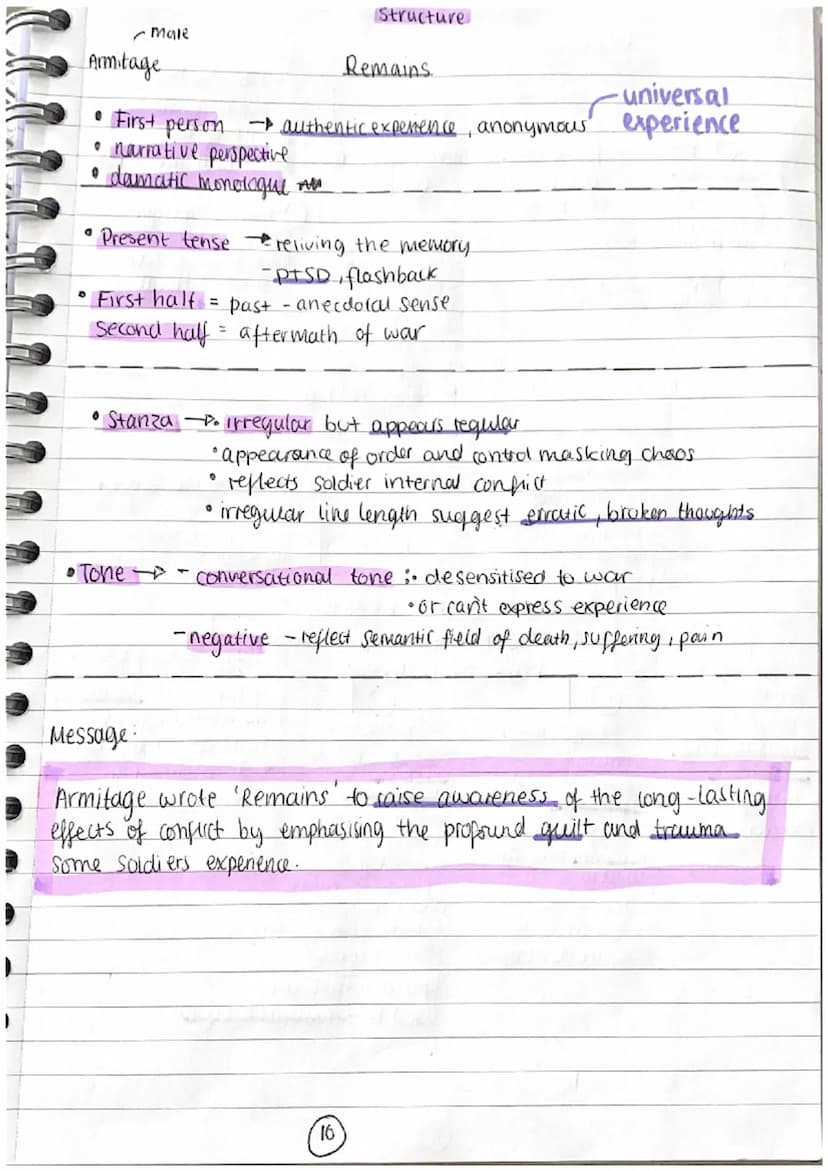 Structure
Male
Armitage Remains
• First person → authentic experience, anonymous universal experience
• narrative perspective
• damatic monologue
• Present tense → - reliving the memory
- PTSD, flashback
• First half = past - anecdotal sense
Second half = aftermath of war
• Stanza → • irregular but appears regular
• appearance of order and control masking chaos
• reflects soldier internal conflict
• irregular line length suggest erratic, broken thoughts
• Tone → - conversational tone ∴ desensitised to war
• or can't express experience
- negative - reflect semantic field of death, suffering, pain
Message:
Armitage wrote 'Remains' to raise awareness of the long-lasting
effects of conflict by emphasising the profound guilt and trauma
some soldiers experience.
10